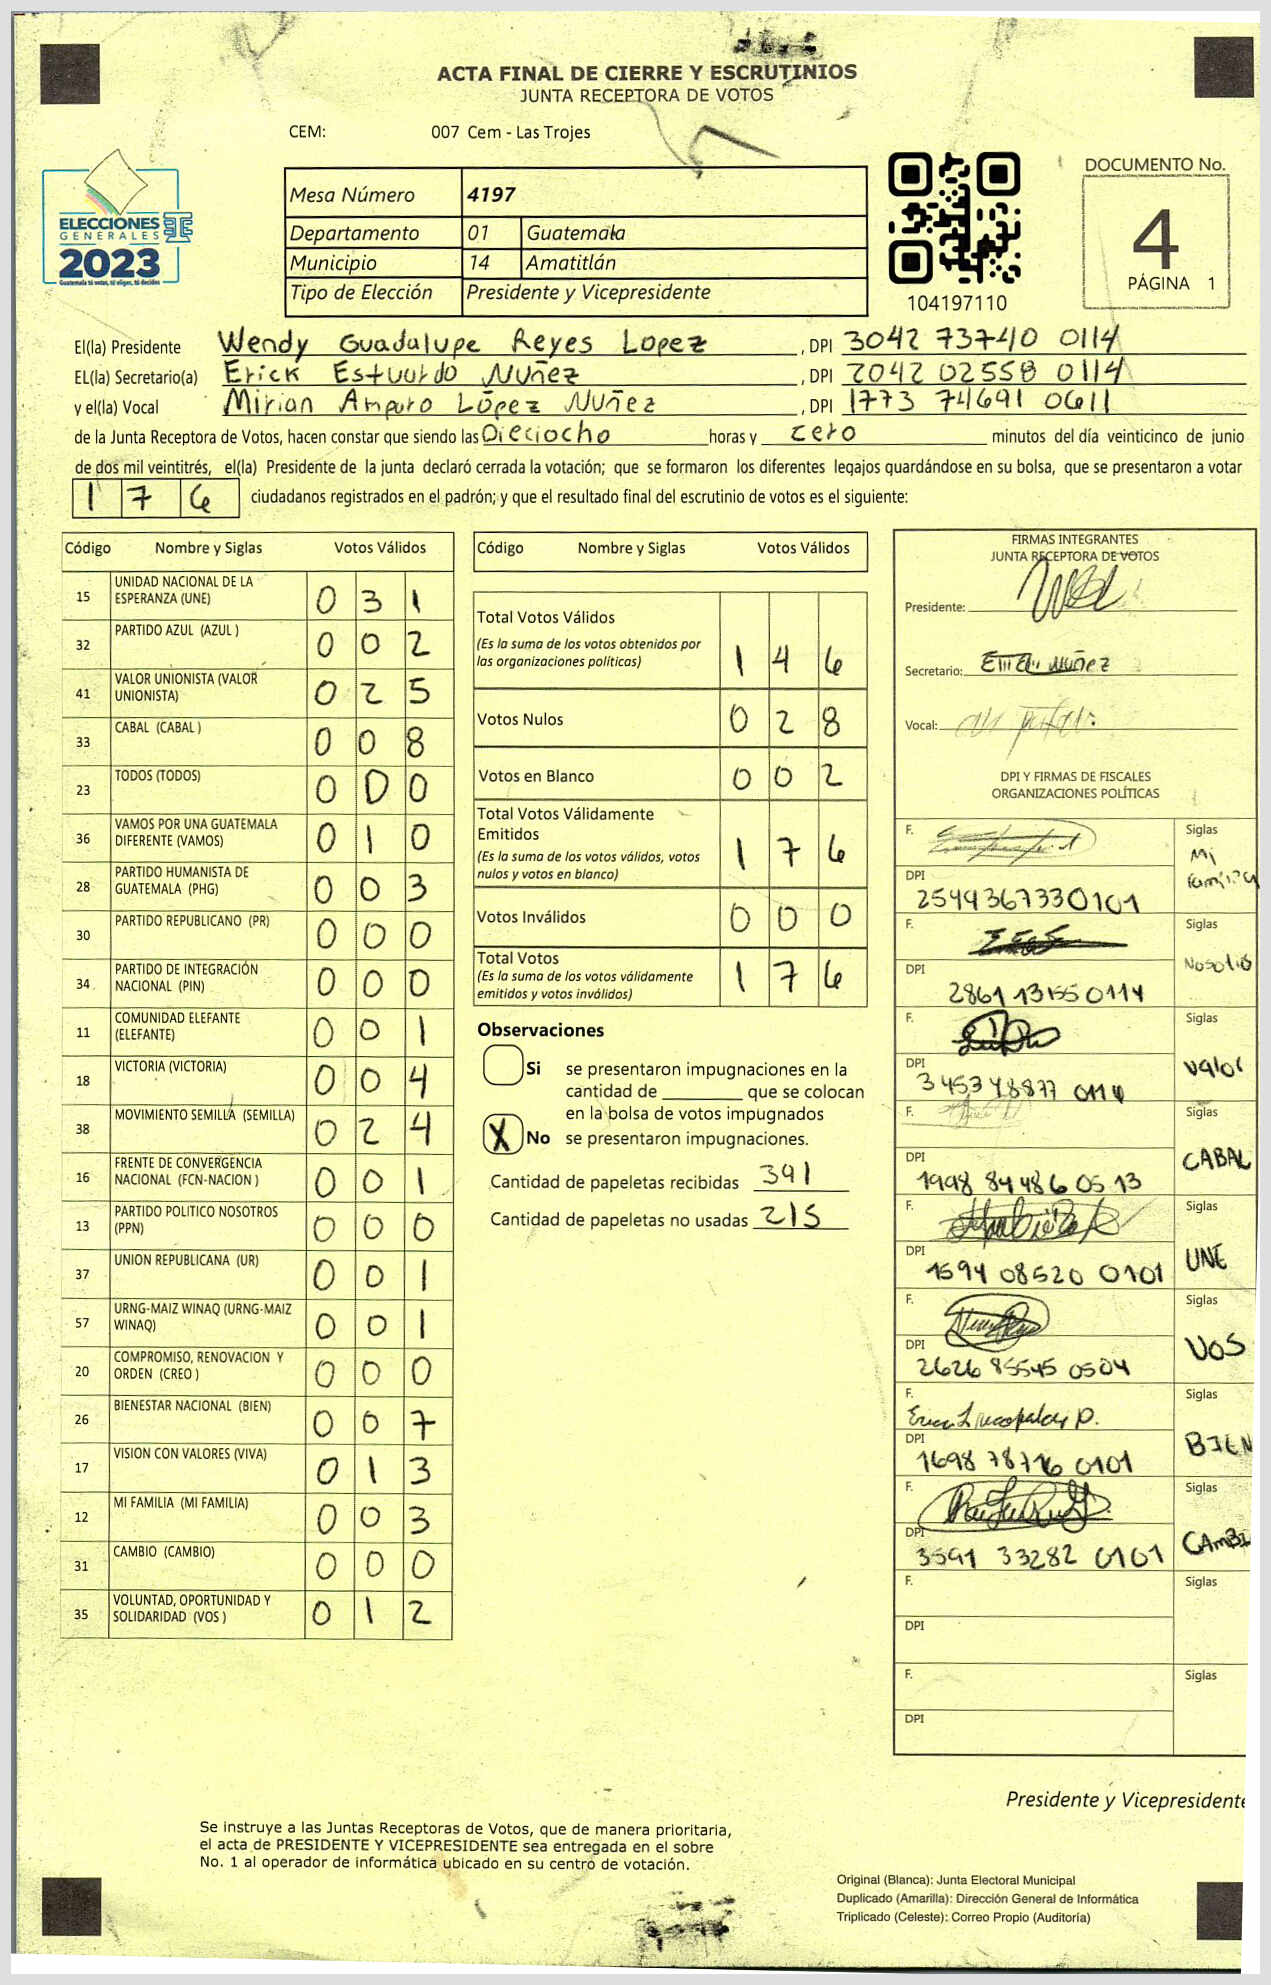 ACTA FINAL DE CIERRE Y ESCRUTINIOS
JUNTA RECEPTORA DE VOTOS
CEM: 007 Cem - Las Trojes
ELECCIONES
GENERALES
2023
Guatemala tú votas, tú eliges, tú decides
Mesa Número 4197
Departamento 01 Guatemala
Municipio 14 Amatitlán
Tipo de Elección Presidente y Vicepresidente
104197110
DOCUMENTO No.
4
PÁGINA 1
El(la) Presidente Wendy Guadalupe Reyes Lopez, DPI 3042 73740 0114
EL(la) Secretario(a) Erick Estuardo Nuñez, DPI 2042 02558 0114
y el(la) Vocal Mirian Amparo López Nuñez, DPI 1773 74691 0611
de la Junta Receptora de Votos, hacen constar que siendo las Dieciocho horas y cero minutos del día veinticinco de junio
de dos mil veintitrés, el(la) Presidente de la junta declaró cerrada la votación; que se formaron los diferentes legajos quardándose en su bolsa, que se presentaron a votar
176 ciudadanos registrados en el padrón; y que el resultado final del escrutinio de votos es el siguiente:
Código Nombre y Siglas Votos Válidos
15 UNIDAD NACIONAL DE LA ESPERANZA (UNE) 031
32 PARTIDO AZUL (AZUL ) 002
41 VALOR UNIONISTA (VALOR UNIONISTA) 025
33 CABAL (CABAL ) 008
23 TODOS (TODOS) 000
36 VAMOS POR UNA GUATEMALA DIFERENTE (VAMOS) 010
28 PARTIDO HUMANISTA DE GUATEMALA (PHG) 003
30 PARTIDO REPUBLICANO (PR) 000
34 PARTIDO DE INTEGRACIÓN NACIONAL (PIN) 000
11 COMUNIDAD ELEFANTE (ELEFANTE) 001
18 VICTORIA (VICTORIA) 004
38 MOVIMIENTO SEMILLA (SEMILLA) 024
16 FRENTE DE CONVERGENCIA NACIONAL (FCN-NACION ) 001
13 PARTIDO POLITICO NOSOTROS (PPN) 000
37 UNION REPUBLICANA (UR) 001
57 URNG-MAIZ WINAQ (URNG-MAIZ WINAQ) 001
20 COMPROMISO, RENOVACION Y ORDEN (CREO ) 000
26 BIENESTAR NACIONAL (BIEN) 007
17 VISION CON VALORES (VIVA) 013
12 MI FAMILIA (MI FAMILIA) 003
31 CAMBIO (CAMBIO) 000
35 VOLUNTAD, OPORTUNIDAD Y SOLIDARIDAD (VOS ) 012
Código Nombre y Siglas Votos Válidos
Total Votos Válidos 146
(Es la suma de los votos obtenidos por
las organizaciones políticas)
Votos Nulos 028
Votos en Blanco 002
Total Votos Válidamente
Emitidos 176
(Es la suma de los votos válidos, votos
nulos y votos en blanco)
Votos Inválidos 000
Total Votos 176
(Es la suma de los votos válidamente
emitidos y votos inválidos)
Observaciones
Si se presentaron impugnaciones en la
cantidad de ________ que se colocan
en la bolsa de votos impugnados
X No se presentaron impugnaciones.
Cantidad de papeletas recibidas 391
Cantidad de papeletas no usadas 215
FIRMAS INTEGRANTES
JUNTA RECEPTORA DE VOTOS
Presidente:
Secretario: Nuñez
Vocal:
DPI Y FIRMAS DE FISCALES
ORGANIZACIONES POLÍTICAS
F. Siglas Mi Familia
DPI 2549367330101
F. Siglas Nosotros
DPI 2861 13155 0114
F. Siglas Valor
DPI 3453 48877 0114
F. Siglas CABAL
DPI 1998 84486 0513
F. Siglas UNE
DPI 1594 08520 0101
F. Siglas VOS
DPI 2626 85545 0504
F. Siglas BIEN
DPI 1698 78716 0101
F. Siglas CAMBI
DPI 3591 33282 0101
F. Siglas
DPI
F. Siglas
DPI
Presidente y Vicepresidente
Se instruye a las Juntas Receptoras de Votos, que de manera prioritaria,
el acta de PRESIDENTE Y VICEPRESIDENTE sea entregada en el sobre
No. 1 al operador de informática ubicado en su centro de votación.
Original (Blanca): Junta Electoral Municipal
Duplicado (Amarilla): Dirección General de Informática
Triplicado (Celeste): Correo Propio (Auditoría)